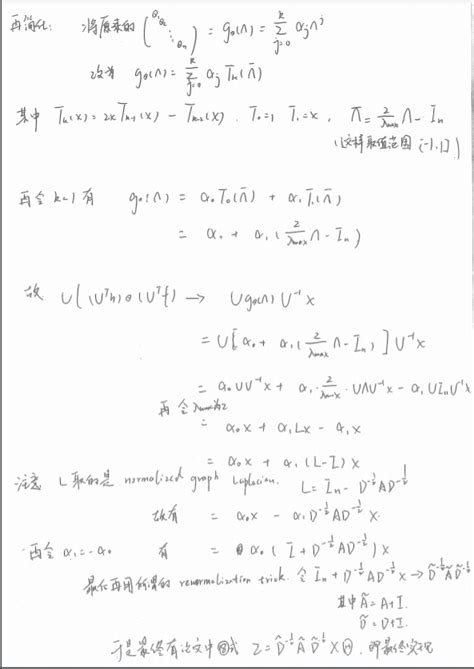 再简化: 将原来的 (θ₁ θ₂ ⋱ θₙ) = g₀(Λ) = Σ_{j=0}^{k} αⱼΛʲ
改为 g₀(Λ) = Σ_{j=0}^{k} αⱼ Tₖ(Λ̄)
其中 Tₖ(x) = 2xTₖ₋₁(x) - Tₖ₋₂(x) . T₀=1 T₁=x , Λ̄ = 2/λmax Λ - Iₙ
(这样取值范围 [-1,1])
再令 k=1 有 g₀(Λ) = α₀T₀(Λ̄) + α₁T₁(Λ̄)
= α₀ + α₁(2/λmax Λ - Iₙ)
故 U((Uᵀh)⊙(Uᵀf)) → U g₀(Λ) U⁻¹x
= U[α₀ + α₁(2/λmax Λ - Iₙ)]U⁻¹x
= α₀UU⁻¹x + α₁·2/λmax·UΛU⁻¹x - α₁UIₙU⁻¹x
再令λmax为2
= α₀x + α₁Lx - α₁x
= α₀x + α₁(L-I)x
注意 L取的是 normalized graph Laplacian. L = Iₙ - D^{-1/2}AD^{-1/2}
故有 = α₀x - α₁D^{-1/2}AD^{-1/2}x.
再令 α₁=-α₀ 有 = α₀(I + D^{-1/2}AD^{-1/2})x
最后再用所谓的 renormalization trick. 令 Iₙ + D^{-1/2}AD^{-1/2}x → D̃^{-1/2}ÃD̃^{-1/2}
其中 Ã = A+I.
D̃ = D+I.
于是最终有论文中 图式 Z = D̃^{-1/2}ÃD̃^{-1/2}XΘ. 即最终实现